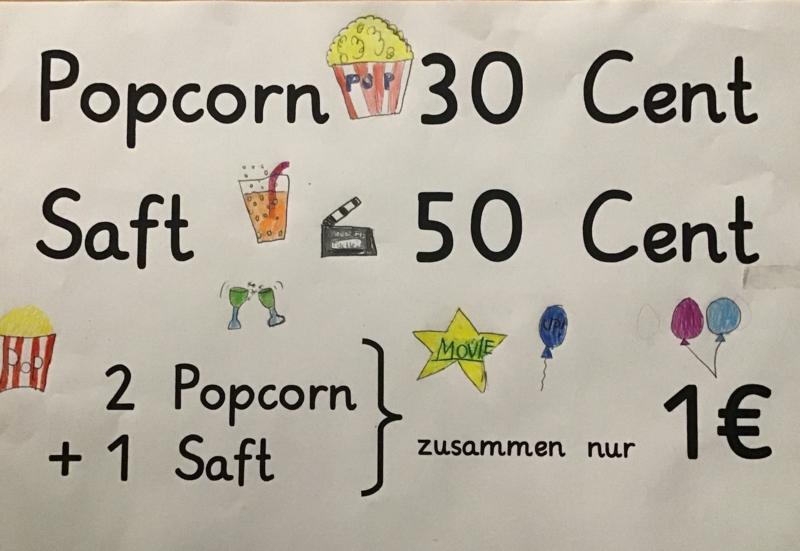 Popcorn POP 30 Cent
Saft 50 Cent
MOVIE
POP
2 Popcorn
+ 1 Saft
zusammen nur 1€